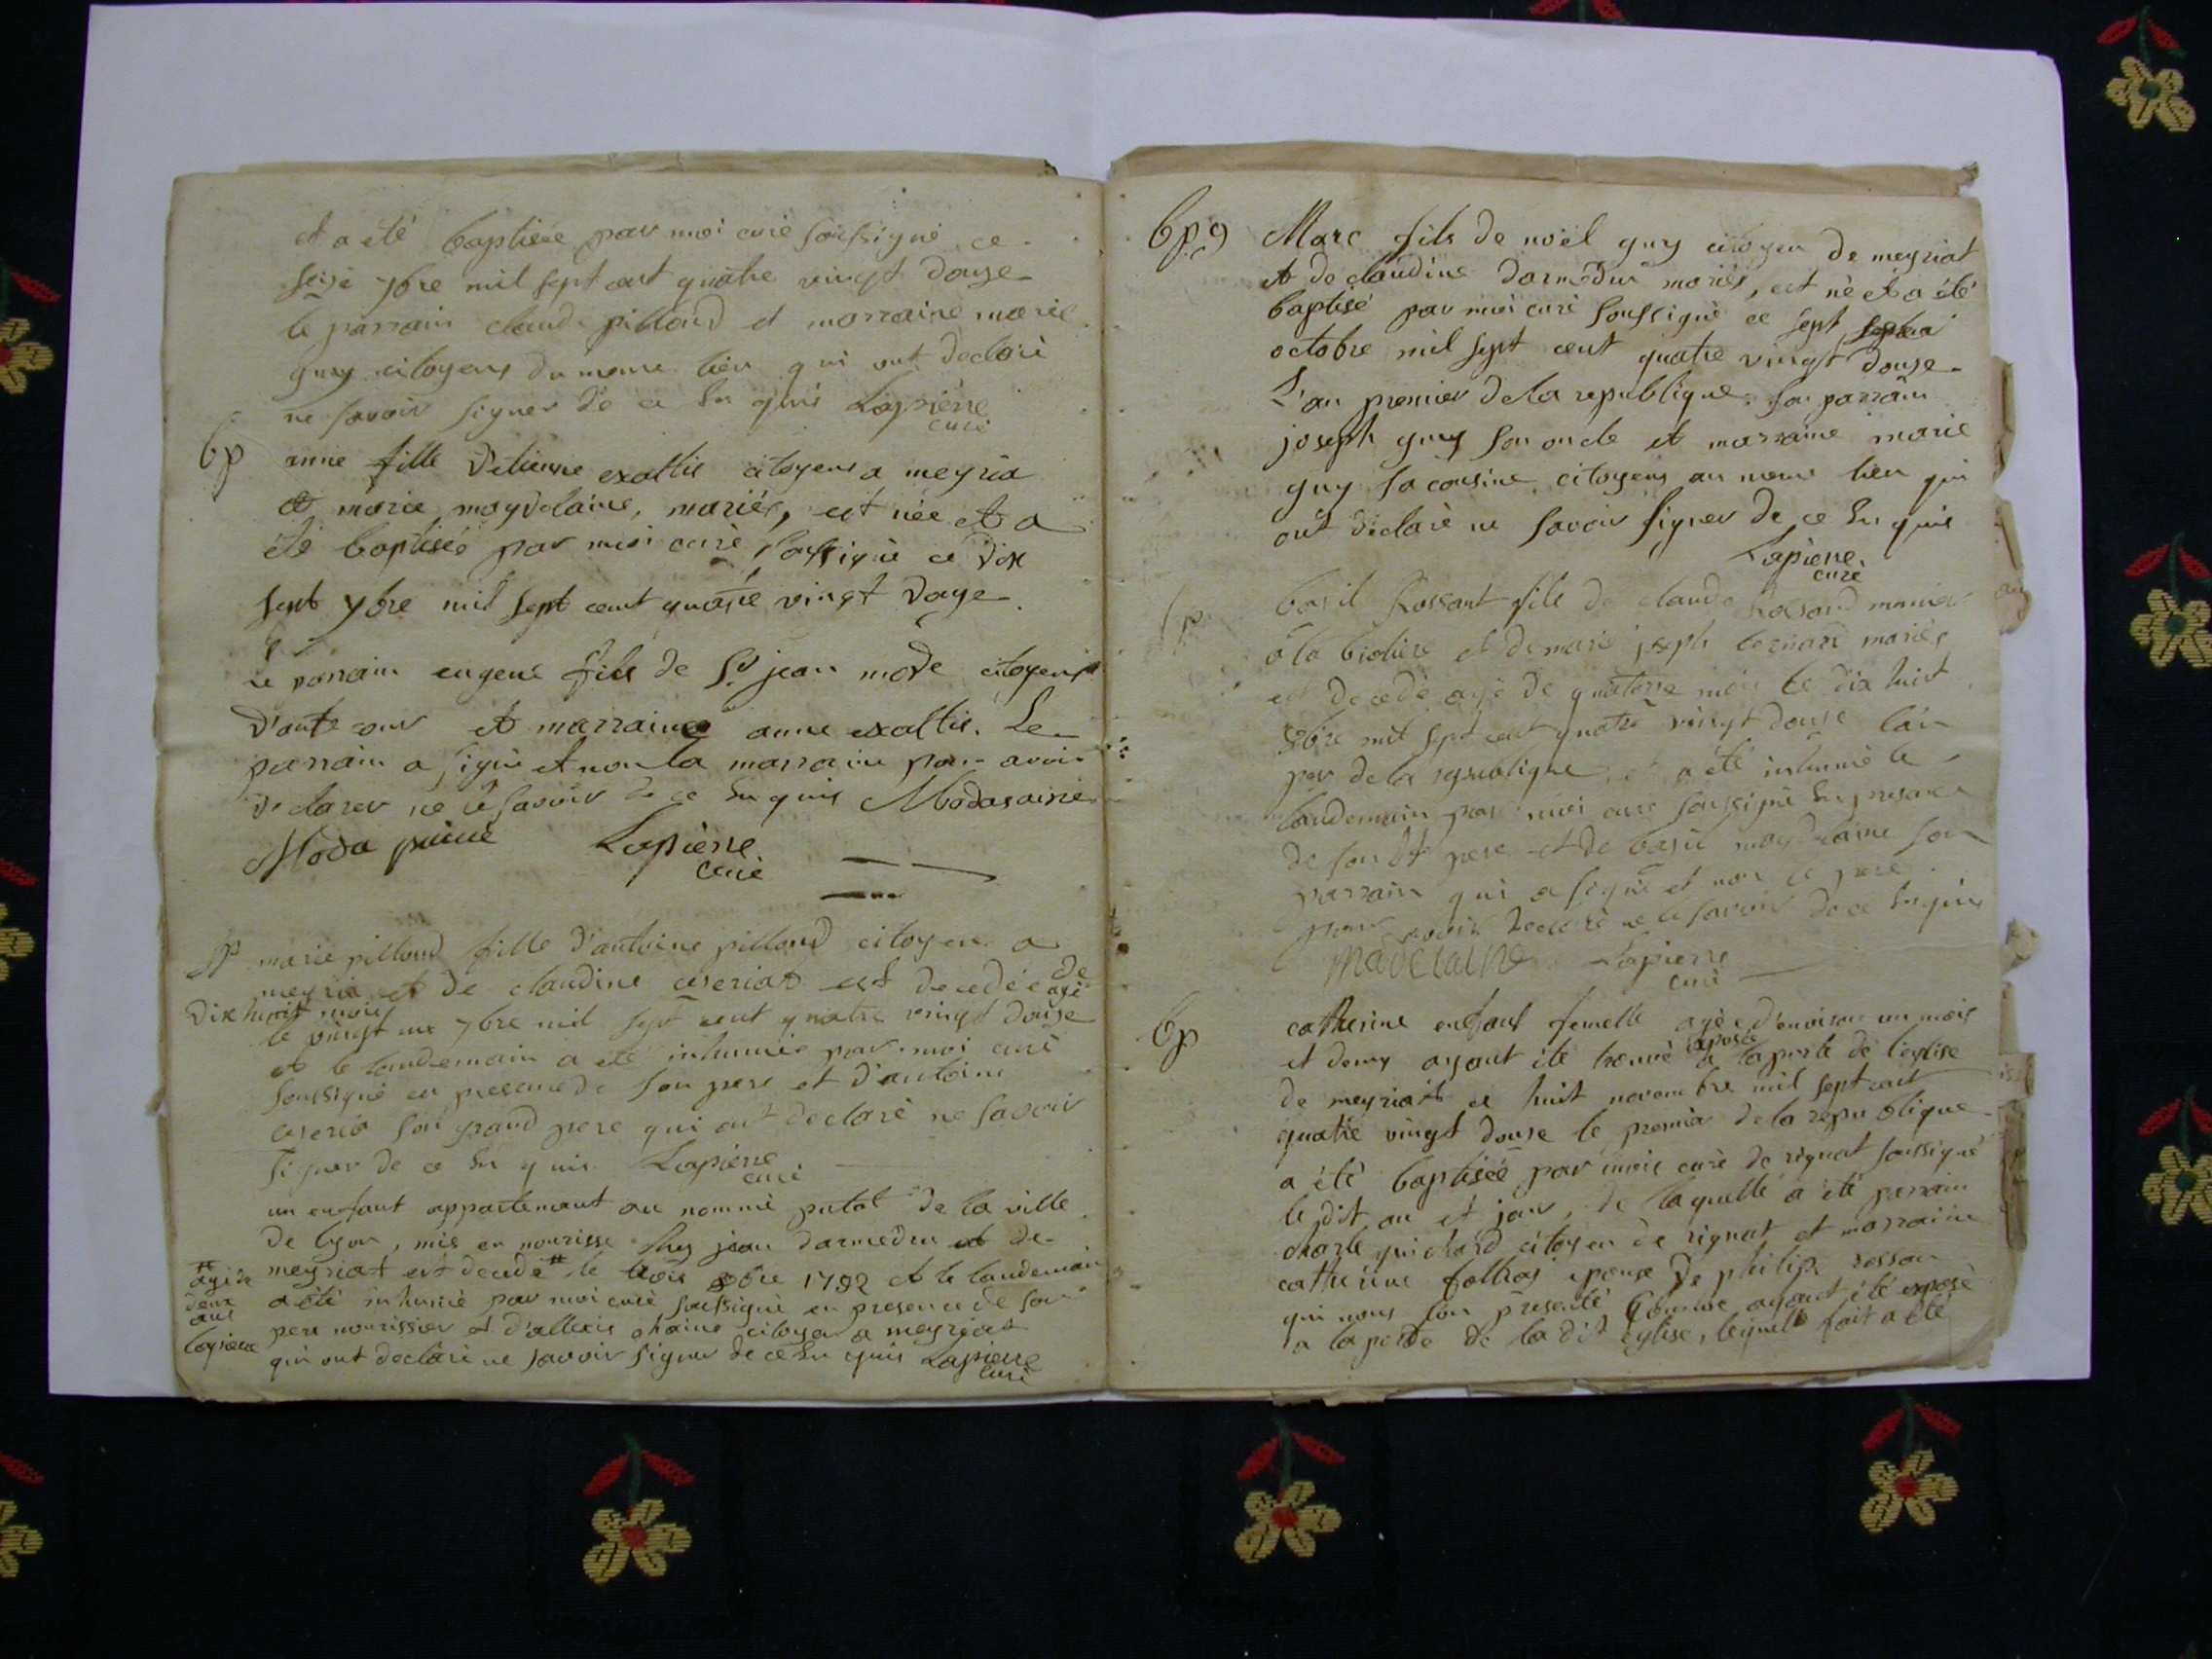 et a eté baptisée par moi curé soussigné ce
seize 7bre mil sept cent quatre vingt douze
le parrain claude pilloud et marraine marie
guy citoyens du meme lieu qui ont declaré
ne savoir signer de ce Enquis Lapierre
curé
Bp
anne fille d'etienne exaltié citoyens a meyria
et marie maydelaine, mariés, est née et a
été baptisée par moi curé soussigné ce dix
sept 7bre mil sept cent quatre vingt douze
le parrain eugene fils de Sr jean mode citoyens
et marraine anne exaltié. Le
parrain a signé et non la marraine pour avoir
declarer ne le savoir de ce Enquis
Moda Lapierre
curé
marie pilloud fille d'antoine pilloud citoyen a
meyria et de claudine ceseriat est decedée agé de
dix huit mois
le vingt un 7bre mil sept cent quatre vingt douze
et le landemain a eté inhumée par moi curé
soussigné en presence de son pere et d'antoine
ceseria son grand pere qui ont declaré ne savoir
signer de ce Enquis Lapierre
curé
un enfant appartenant au nommé putot de la ville
de lyon, mis en nourisse chez jean darmedin de
meyriat est decedé # le trois 8bre 1792 et le landemain
# agé de
deux
ans
Lapierre
a été inhumé par moi curé soussigné en presence de son
pere nourissier et d'allexis chaine citoyen a meyriat
qui ont declaré ne savoir signer de ce Enquis Lapierre
curé
Bp 9
Marc fils de noël guy citoyen de meyriat
et de claudine darmedin mariés, est né et a été
baptisé par moi curé soussigné ce sept
octobre mil sept cent quatre vingt douze
L'an premier de la republique. son parrain
joseph guy son oncle et marraine marie
guy sa cousine citoyens au meme lieu qui
ont declaré ne savoir signer de ce Enquis
Lapierre
curé
basil Rossant fils de claude Rossand
a la et de marie joseph mariés
est decedé agé de quatorze mois le dix huit
8bre mil sept cent quatre vingt douze l'an
per de la republique, et a été inhumé le
landemain par moi curé soussigné En presence
de son dt pere et de basil maydelaine son
parrain qui a signé et non le pere
pour avoir declaré ne le savoir de ce Enquis
Madelaine Lapierre
curé
Bp
catherine enfant femelle agée d'environ un mois
et demy ayant été trouvé exposée a la porte de l'eglise
de meyriat ce huit novembre mil sept cent
quatre vingt douze le premier de la republique
a été baptisée par moi curé de rignat soussigné
le dit an et jour, de laquelle a été parrain
charle guichard citoyen de rignat et marraine
catherine epouse de philipe rossan
qui nous l'on presenté comme ayant été exposé
a la porte de la dit eglise, lequel fait a été